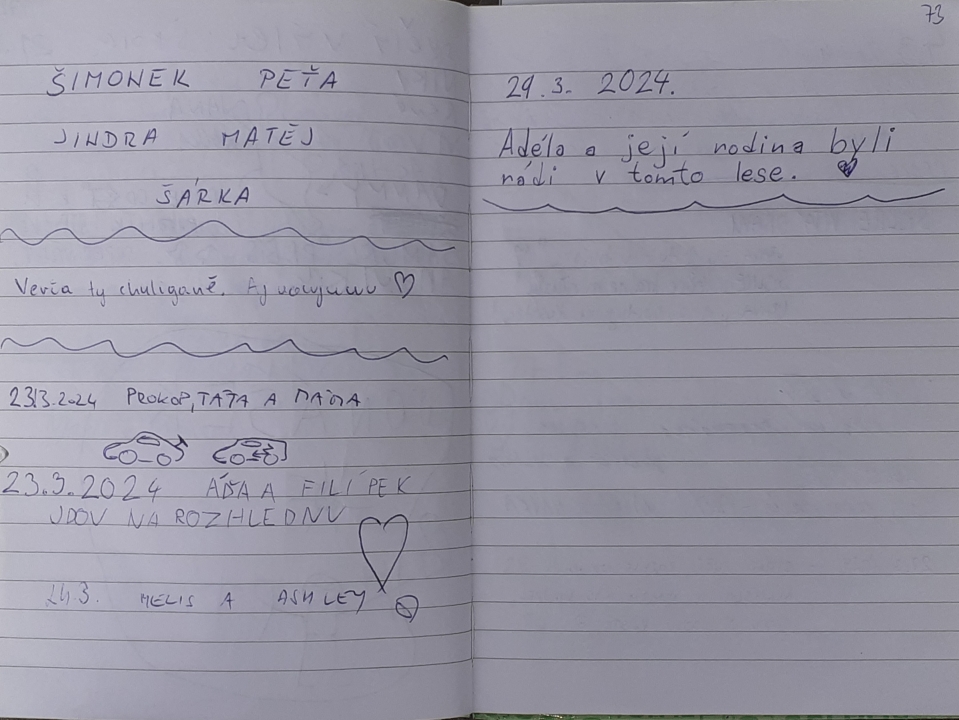 ŠIMONEK PEŤA
JINDRA MATĚJ
ŠÁRKA
Verča ty chuligáně. Ej
23.3.2024 PROKOP, TÁTA A MÁMA
23.3.2024 A FILÍPEK
JDOU NA ROZHLEDNU
24.3. MELIS A ASHLEY
73
29.3. 2024.
Adéla a její rodina byli
rádi v tomto lese.